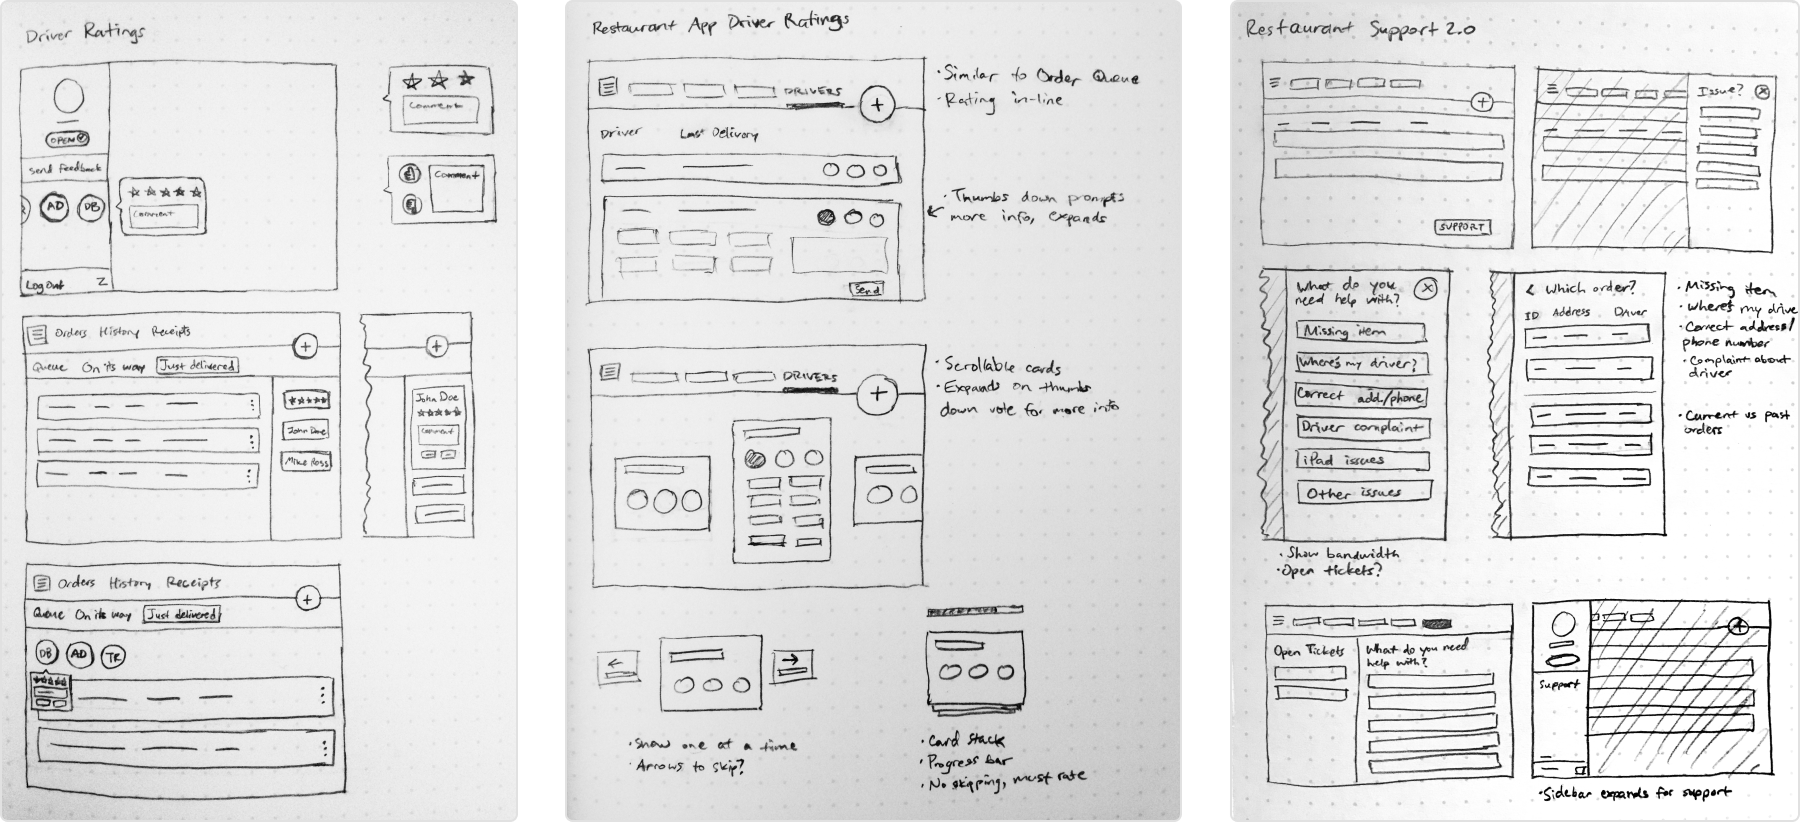 Driver Ratings
OPEN
Send feedback
AD
DB
Comment
Log Out
Comment
Comment
Orders History Receipts
Queue On its way Just delivered
John Doe
Mike Ross
John Doe
Comment
Orders History Receipts
Queue On its way Just delivered
DB AD TR
Restaurant App Driver Ratings
DRIVERS
Driver Last Delivery
Send
· Similar to Order Queue
· Rating in-line
· Thumbs down prompts
more info, expands
DRIVERS
· Scrollable cards
· Expands on thumbs
down vote for more info
· Show one at a time
· Arrows to skip?
· Card stack
· Progress bar
· No skipping, must rate
Restaurant Support 2.0
SUPPORT
Issue?
What do you
need help with?
Missing item
Where's my driver?
Correct add/phone
Driver complaint
iPad issues
Other issues
· Show bandwidth
· Open tickets?
< Which order?
ID Address Driver
· Missing item
· Where's my drive
· Correct address/
phone number
· Complaint about
driver
· Current vs past
orders
Open Tickets
What do you need
help with?
Support
· Sidebar expands for support